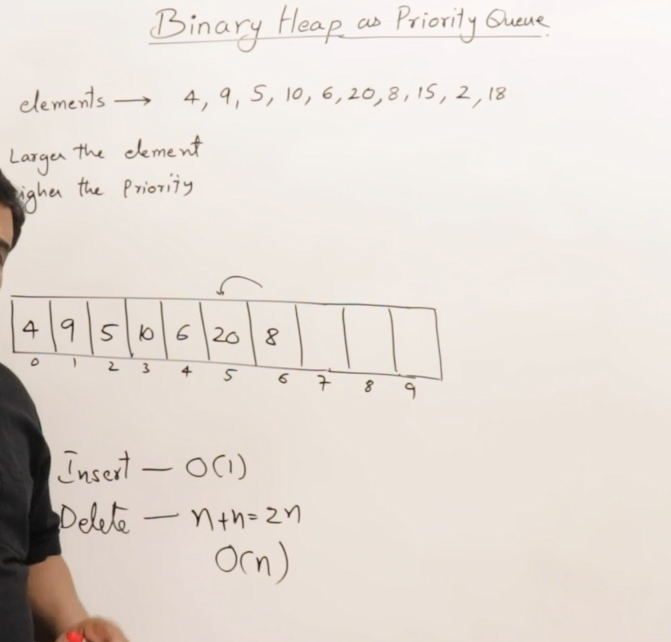 Binary Heap as Priority Queue
elements → 4, 9, 5, 10, 6, 20, 8, 15, 2, 18
Larger the element
igher the Priority
4 9 5 10 6 20 8
0 1 2 3 4 5 6 7 8 9
Insert — O(1)
Delete — n+n=2n
O(n)